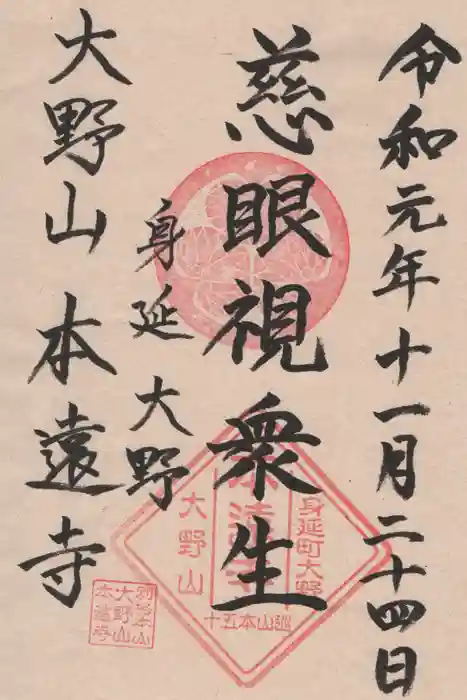 令和元年十一月二十四日
慈眼視衆生
身延大野
大野山 本遠寺
身延町大野
本遠寺
大野山
巡山本五十
別格本山
大野山
本遠寺